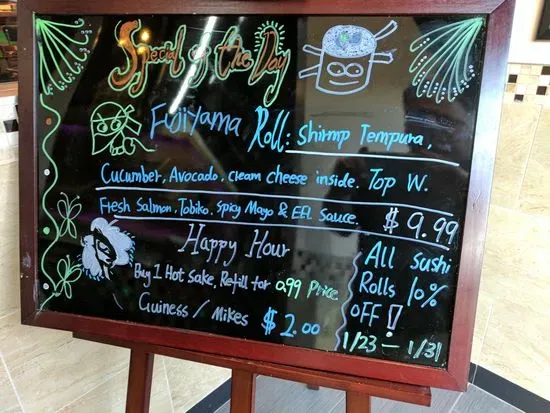 Special of the Day
Fujiyama Roll: Shirmp Tempura,
Cucumber, Avocado, cream cheese inside. Top W.
Fresh Salmon, Tobiko, Spicy Mayo & EEL Sauce. $9.99
Happy Hour
Buy 1 Hot Sake, Refill for 0.99 Price
Guiness / Mikes $2.00
All sushi
Rolls 10%
OFF!
1/23 - 1/31